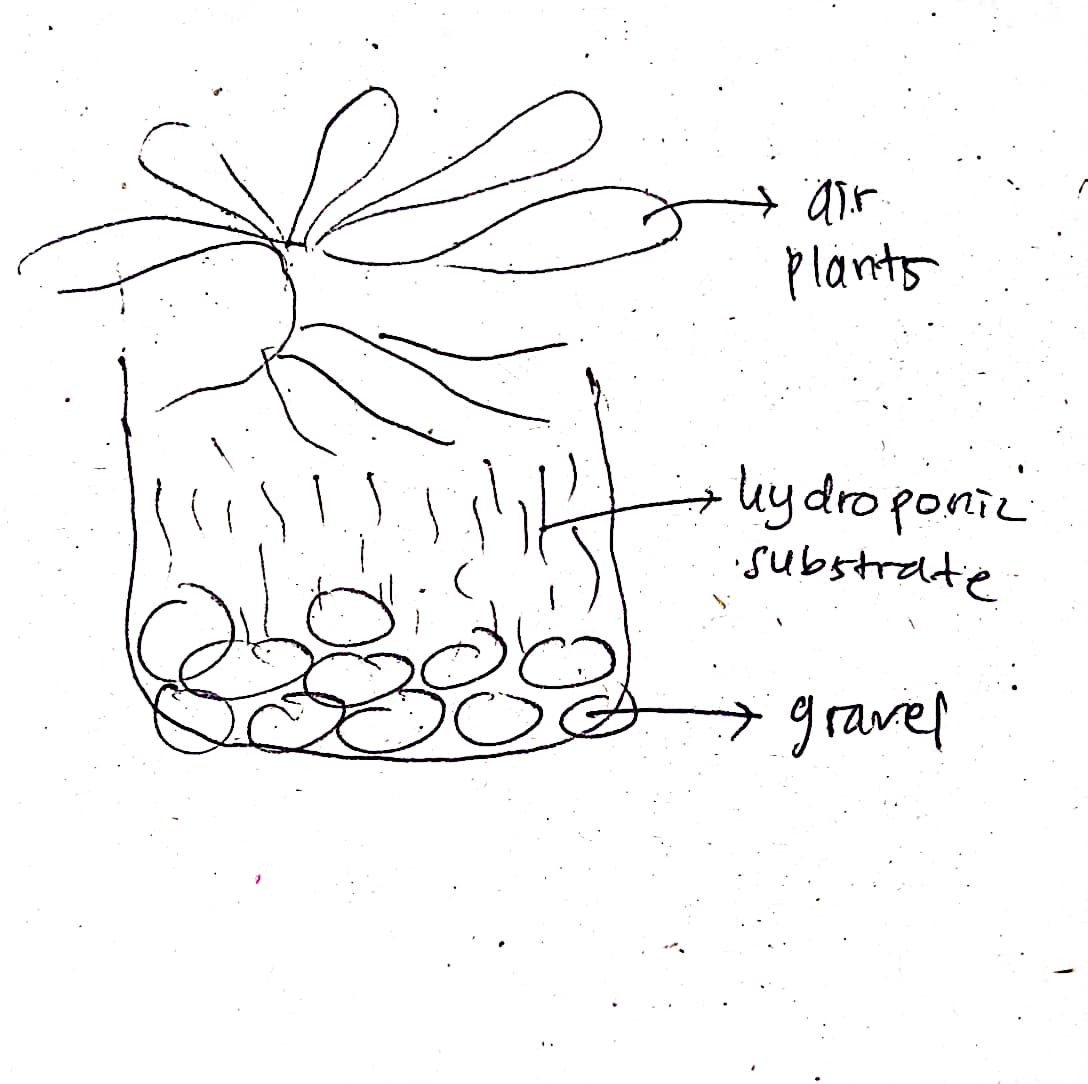 air
plants
hydroponic
substrate
gravel